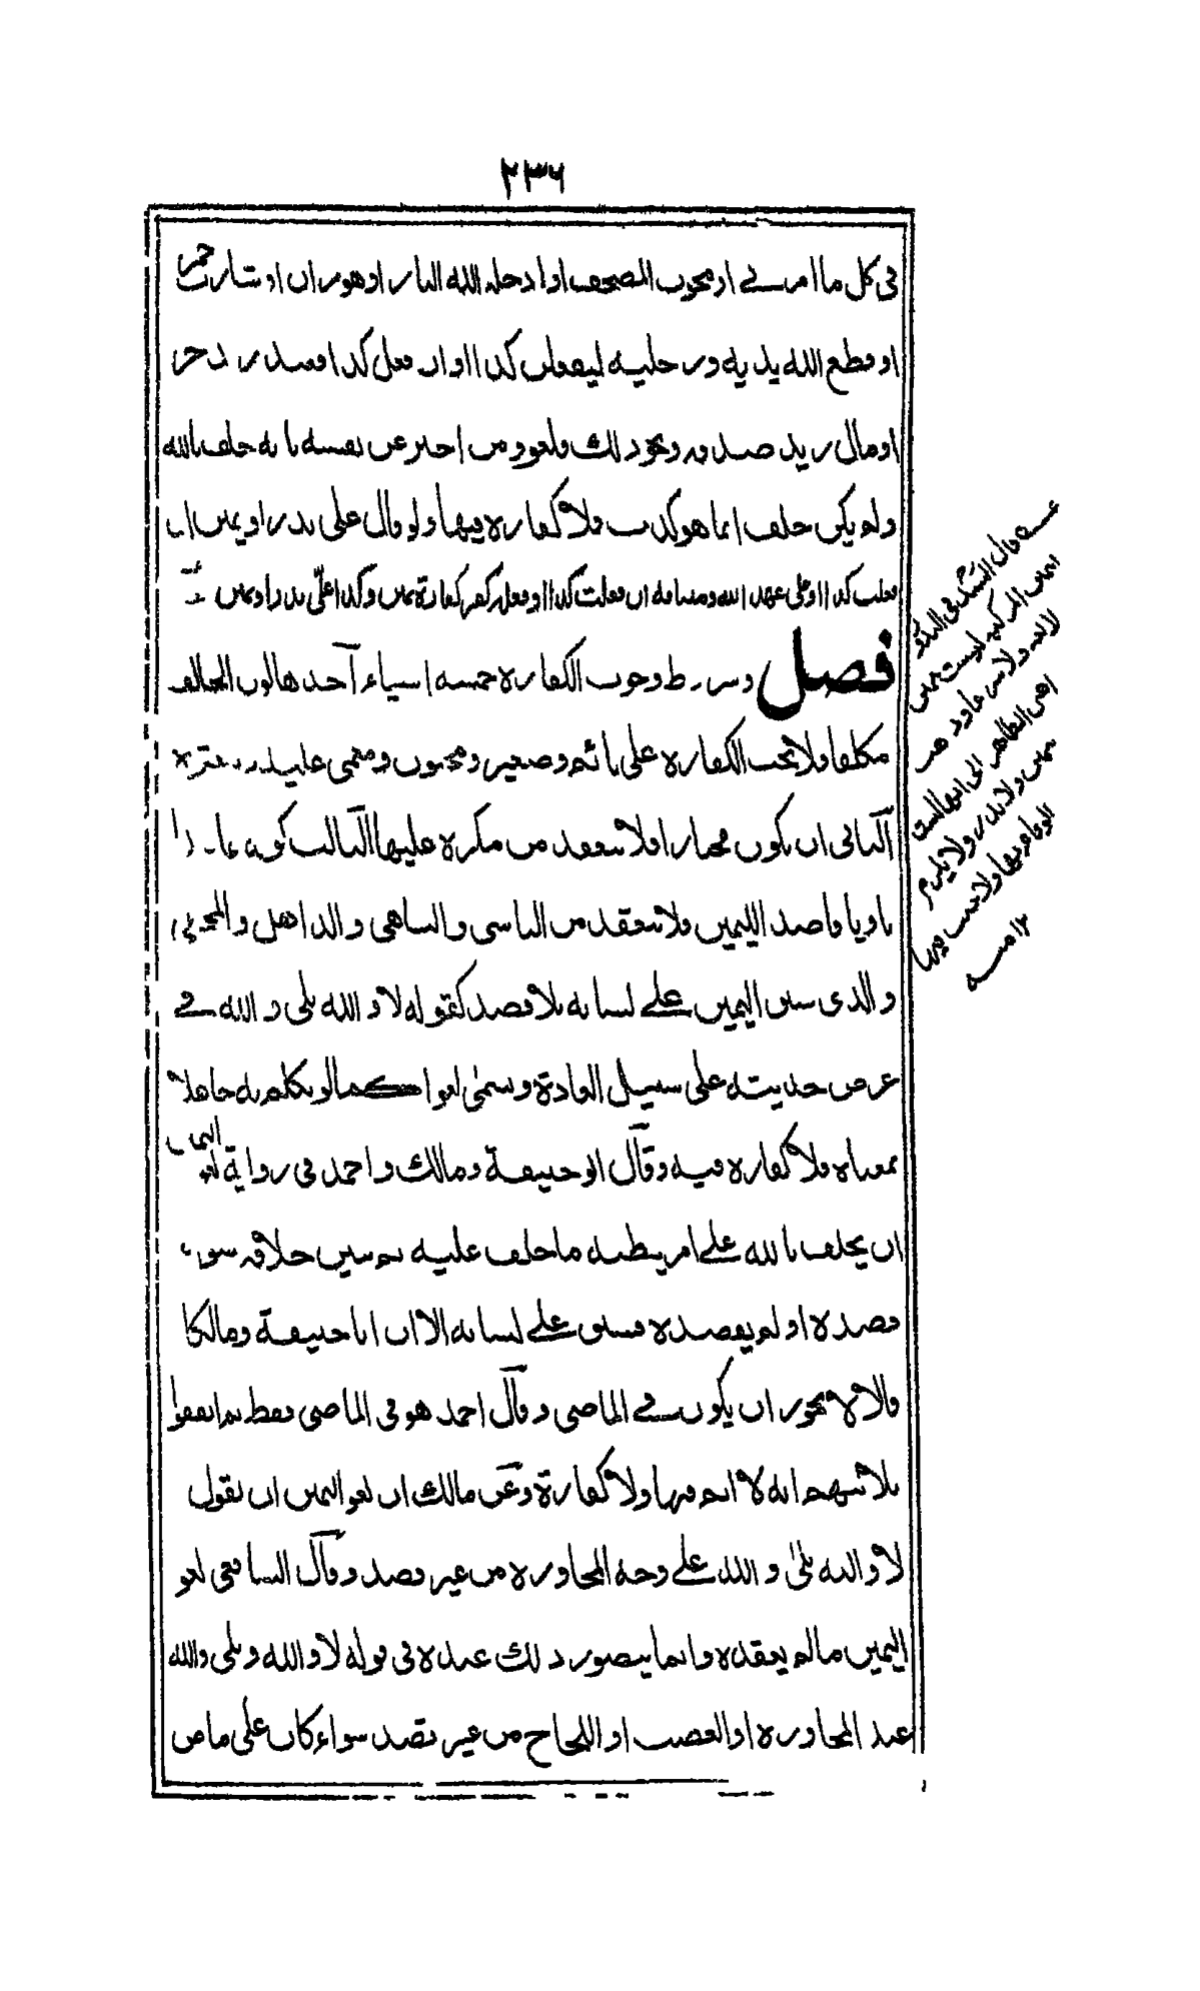 ٢٣٦
فى كل ما امرنى او محوب المصحف او ادخله الله النار او هو زان او شارب خمر
او قطع الله يديه ورجليه ليفعلن كذا او ان فعل كذا فعبد زيد حر
او مال زيد صدقه ونحو ذلك فلغو ومن اخبر عن نفسه بانه حلف بالله
ولم يكن حلف انما هو كذب فلا كفارة فيها ولو قال على نذر او يمين ان
فعلت كذا او على عهد الله وميثاقه ان فعلت كذا او فعله كفر كفارة يمين وكذا علىّ نذر او يمين
فصل وشرط وجوب الكفارة خمسة اشياء آحدها كون الحالف
مكلفا ولا تجب الكفارة على نائم وصغير ومجنون ومغمى عليه
آلثانى ان يكون مختارا فلا تنعقد من مكره عليها آلثالث كونه
ناويا قاصد اليمين فلا تنعقد من الناسى والساهى والذاهل والمجنون
والذى سبق اليمين على لسانه بلا قصد كقوله لا والله بلى والله فى
عرض حديثه على سبيل العادة وسمى لغوا كما لو تكلم به جاهلا
معناه فلا كفارة فيه وقآل ابو حنيفة ومالك واحمد فى رواية لغو اليمين
ان يحلف بالله على امر يظنه ما حلف عليه ثم تبين خلافه سواء
قصده او لم يقصده فسبق على لسانه الا ان ابا حنيفة ومالكا
قالا لا يجوز ان يكون فى الماضى وقآل احمد هو فى الماضى فقط ثم اتفقوا
ثلاثتهم انه لا اثم فيها ولا كفارة وعن مالك ان لغو اليمين ان يقول
لا والله بلى والله على وجه المحاورة من غير قصد وقآل الشافعى لغو
اليمين ما لم يعقده وانما يتصور ذلك عنده فى قوله لا والله وبلى والله
عند المحاورة او الغضب او اللجاج من غير قصد سواء كان على ماض
عـه قال السيد فى
اليمين المركبة ليست يمين